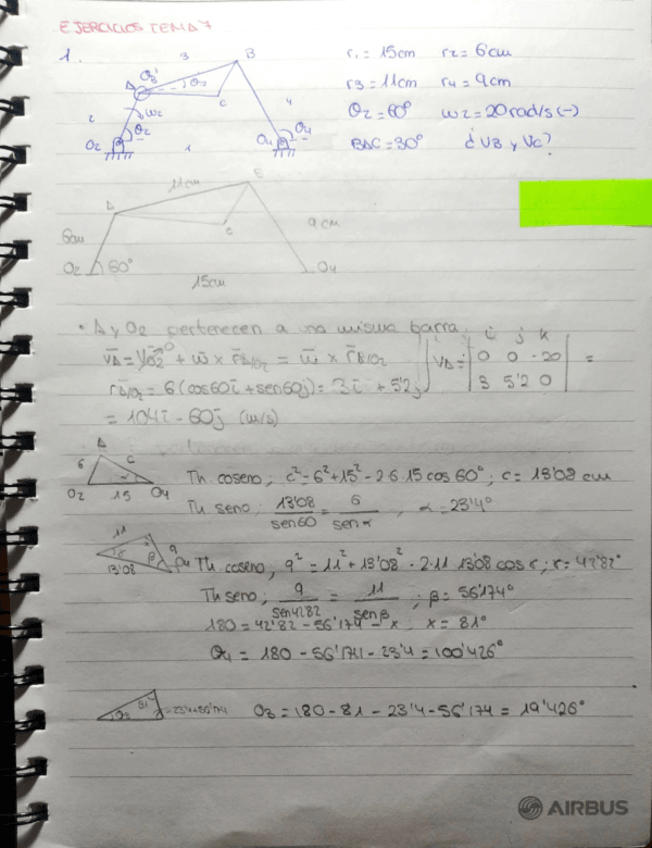 EJERCICIOS TEMA 7
1.
3 B
A θ3 C
2 ω2 4
O2 θ2 1 O4 θ4
r1 = 15cm r2 = 6cm
r3 = 11cm r4 = 9cm
θ2 = 60° ω2 = 20rad/s (-)
BAC = 30° ¿VB y VC?
11cm B
A C
6cm 9cm
O2 60° O4
15cm
• A y O2 pertenecen a una misma barra.
V̄A = V̄O2 + ω̄ x r̄A/O2 = ω̄ x r̄A/O2
r̄A/O2 = 6(cos60i + sen60j) = 3i + 5'2j
VA = | i j k | 0 0 -20 | 3 5'2 0 | =
= 104i - 60j (m/s)
A
6 c
O2 15 O4
Th. coseno; c² = 6² + 15² - 2·6·15 cos 60°; c = 13'08 cm
Th seno; 13'08/sen60 = 6/senα, α = 23'4°
11
β 9 θ4
13'08
Th coseno, 9² = 11² + 13'08² - 2·11·13'08 cos r; r = 42'82°
Th seno; 9/sen42'82 = 11/senβ; β = 56'174°
180 = 42'82 - 56'174 - x; x = 81°
θ4 = 180 - 56'174 - 23'4 = 100'426°
θ3 81 = 23'4+56'174
θ3 = 180 - 81 - 23'4 - 56'174 = 19'426°
AIRBUS